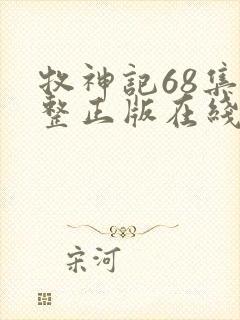 牧神記68集
整正版在綫
宋河